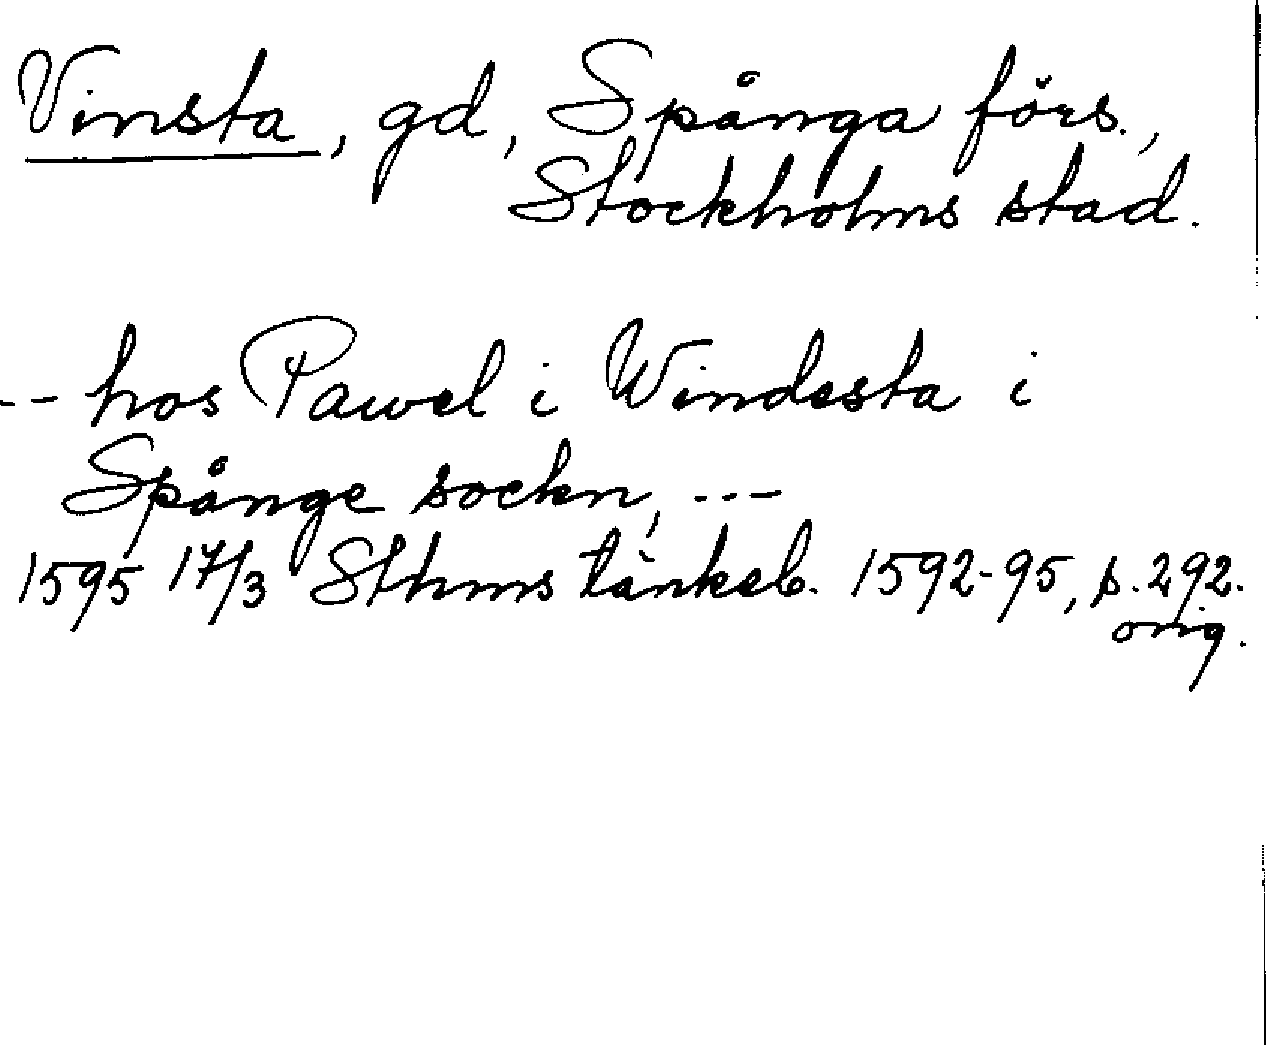 Vinsta, gd, Spånga förs.,
Stockholms stad.
-- hos Pawel i Windesta i
Spånge sockn, ---
1595 17/3 Sthms tänkeb. 1592-95, s. 292.
orig.